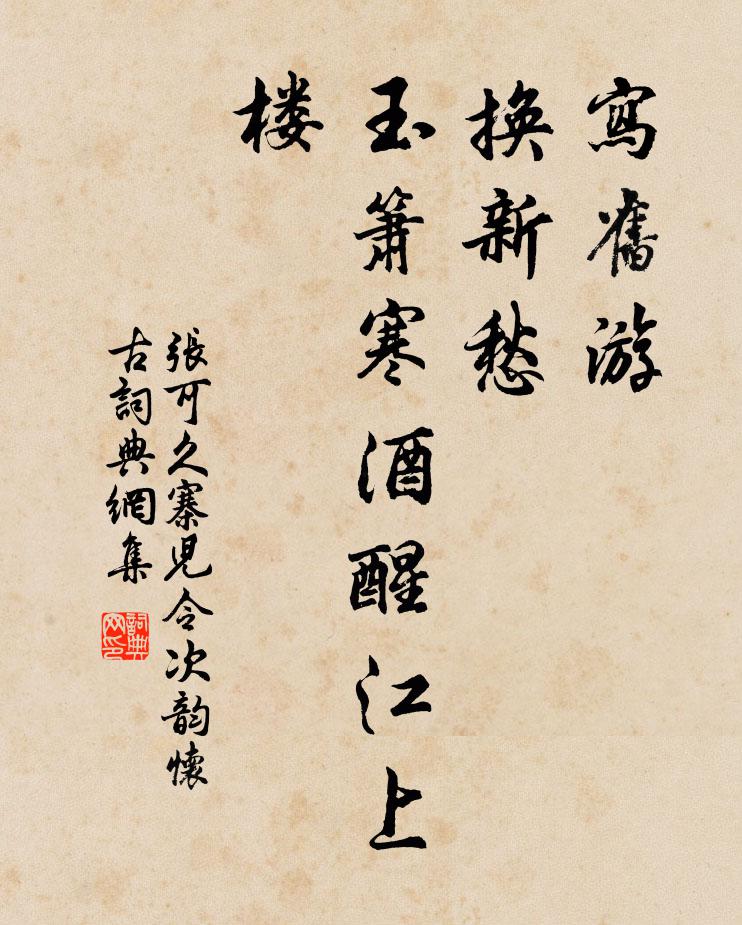 寫舊游
換新愁
玉簫寒酒醒江上
楼
張可久寨児令次韵懷
古詞典網集
詞典
网印